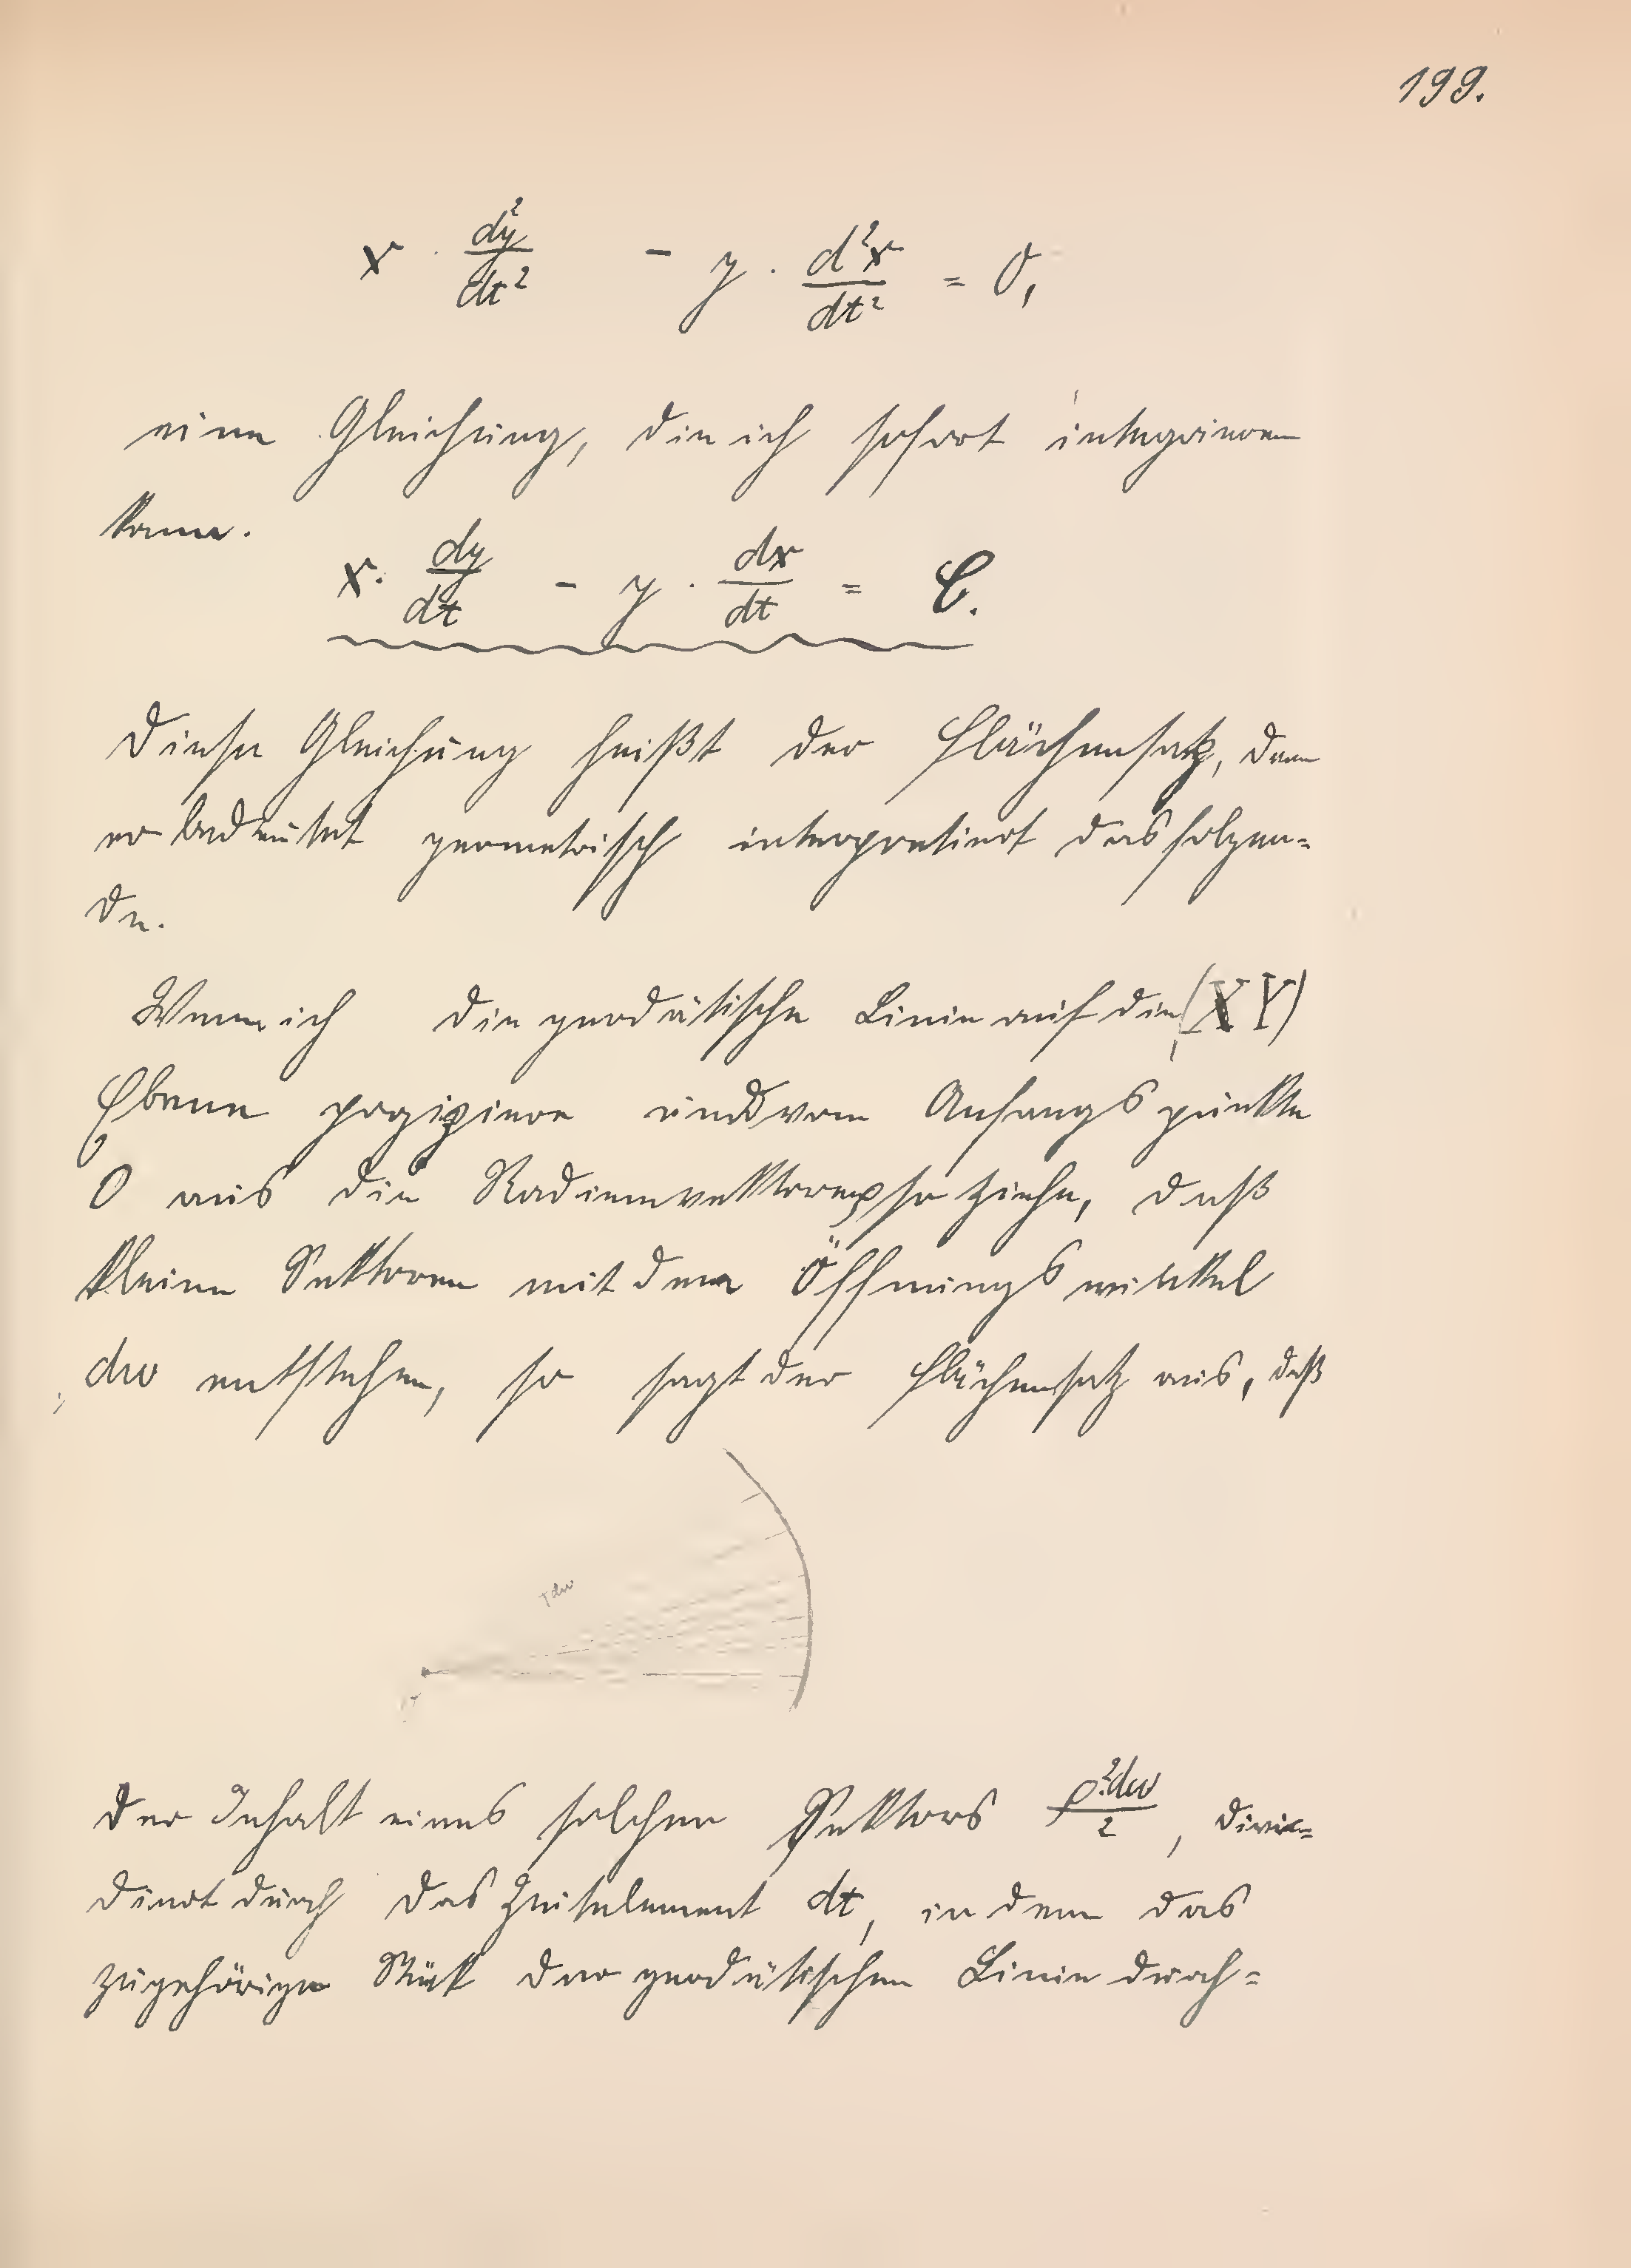 199.
x · d²y/dt² - y · d²x/dt² = 0,
eine Gleichung, die ich sofort integrieren
kann.
x · dy/dt - y · dx/dt = C.
Diese Gleichung heißt der Flächensatz, denn
er bedeutet geometrisch interpretiert das folgen=
de.
Wenn ich die geodätische Linie auf die (XY)
Ebene projiziere und vom Anfangspunkte
O aus die Radienvektoren so ziehe, daß
kleine Sektoren mit dem Öffnungswinkel
dω entstehen, so sagt der Flächensatz aus, daß
dω
Der Inhalt eines solchen Sektors ρ²·dω/2, divi=
diert durch das Zeitelement dt, in dem das
zugehörige Stück der geodätischen Linie durch=